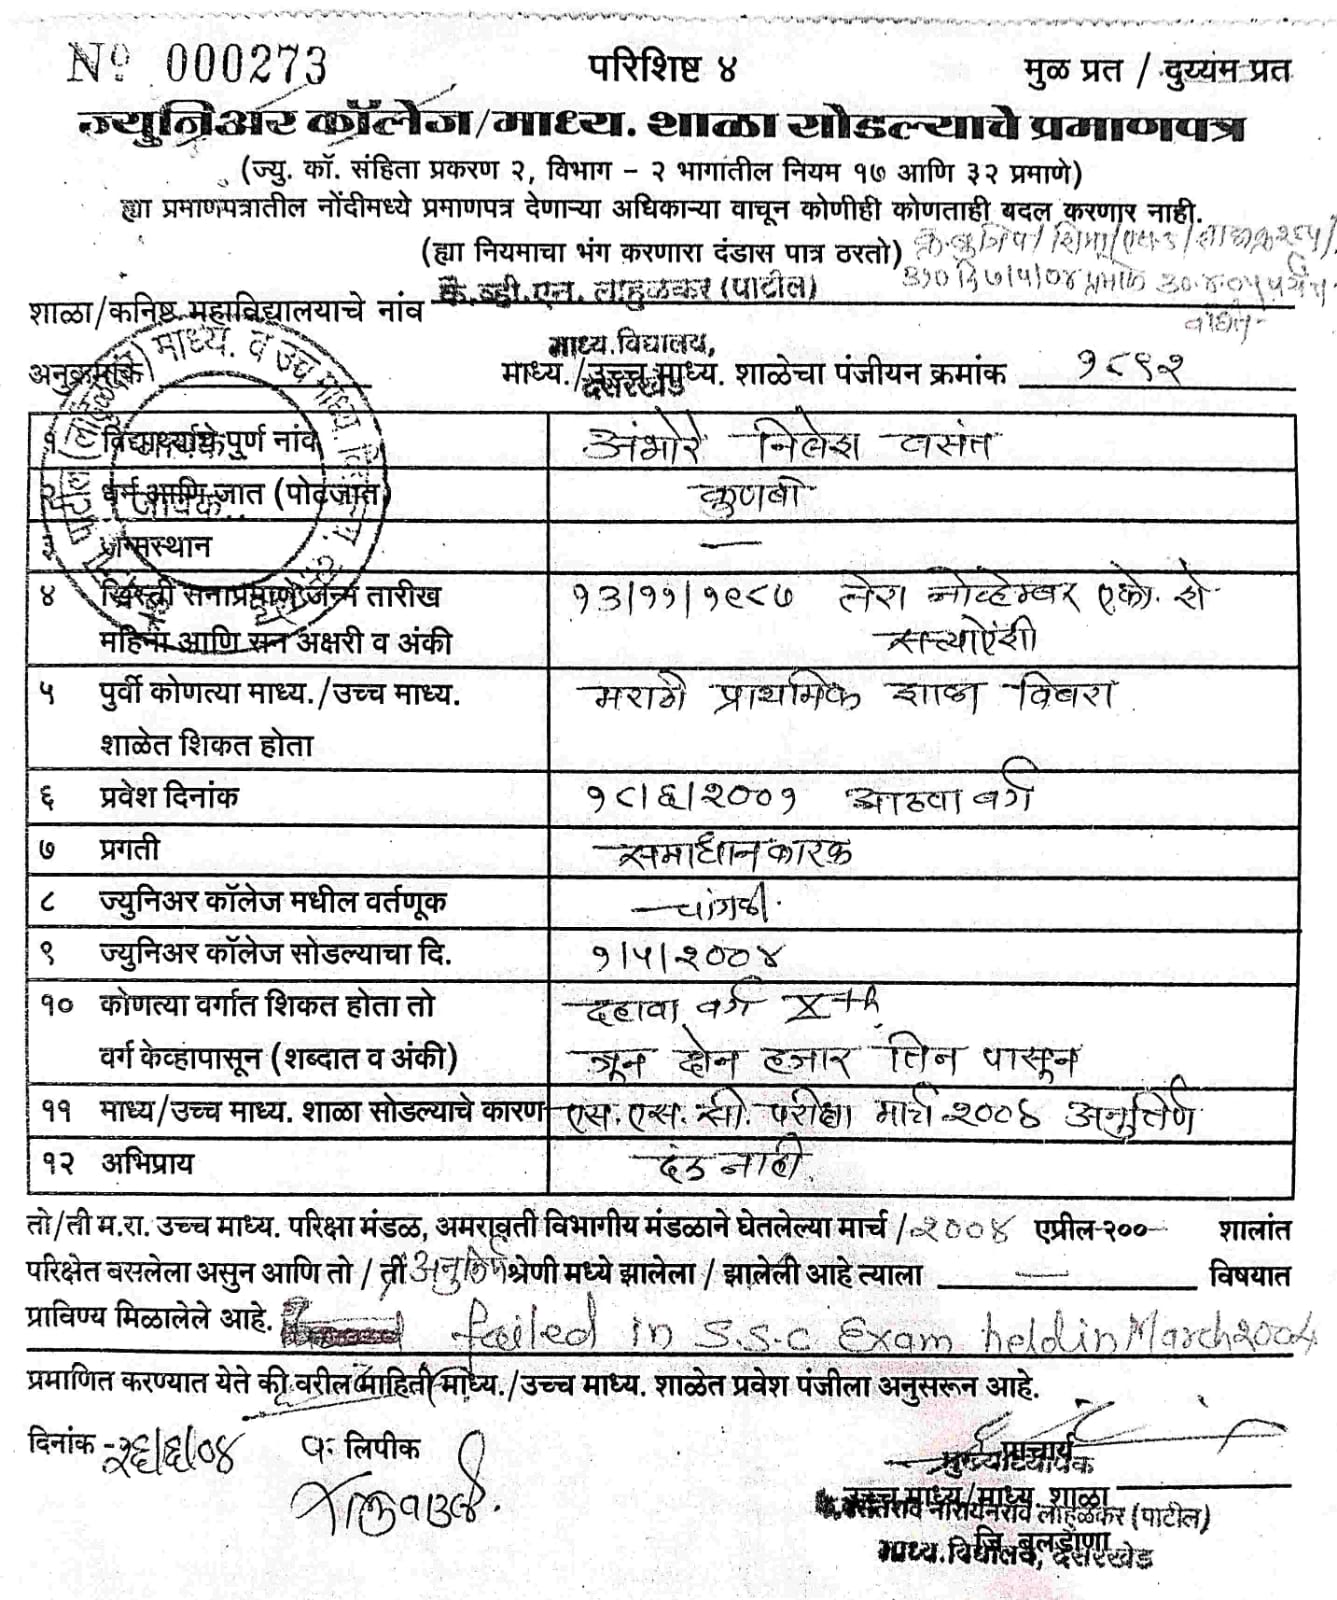 Nº 000273 परिशिष्ट ४ मुळ प्रत / दुय्यम प्रत
ज्युनिअर कॉलेज/माध्य. शाळा सोडल्याचे प्रमाणपत्र
(ज्यु. कॉ. संहिता प्रकरण २, विभाग – २ भागातील नियम १७ आणि ३२ प्रमाणे)
ह्या प्रमाणपत्रातील नोंदीमध्ये प्रमाणपत्र देणाऱ्या अधिकाऱ्या वाचून कोणीही कोणताही बदल करणार नाही.
(ह्या नियमाचा भंग करणारा दंडास पात्र ठरतो)
शाळा/कनिष्ट महाविद्यालयाचे नांव कै.व्ही.एन. लाहुळकर (पाटील)
माध्य.विद्यालय,
अनुक्रमांक माध्य./उच्च माध्य. शाळेचा पंजीयन क्रमांक १८९२
दसरखेड
१ विद्यार्थ्याचे पुर्ण नांव अंभोरे निलेश वसंत
२ धर्म आणि जात (पोटजात) कुणबी
३ जन्मस्थान —
४ ख्रिस्ती सनाप्रमाणे जन्म तारीख १३/११/१९८७ तेरा नोव्हेम्बर एको. शे
महिना आणि सन अक्षरी व अंकी सत्याऐंशी
५ पुर्वी कोणत्या माध्य./उच्च माध्य. मराठी प्राथमिक शाळा विवरा
शाळेत शिकत होता
६ प्रवेश दिनांक १८/६/२००१ आठवा वर्ग
७ प्रगती समाधानकारक
८ ज्युनिअर कॉलेज मधील वर्तणूक चांगली.
९ ज्युनिअर कॉलेज सोडल्याचा दि. १/५/२००४
१० कोणत्या वर्गात शिकत होता तो दहावा वर्ग Xth
वर्ग केव्हापासून (शब्दात व अंकी) जून दोन हजार तिन पासून
११ माध्य/उच्च माध्य. शाळा सोडल्याचे कारण एस. एस. सी. परीक्षा मार्च २००४ अनुतिर्ण
१२ अभिप्राय दंड नाही
तो/ती म.रा. उच्च माध्य. परिक्षा मंडळ, अमरावती विभागीय मंडळाने घेतलेल्या मार्च / २००४ एप्रील-२०० शालांत
परिक्षेत बसलेला असुन आणि तो / ती अनुतिर्ण श्रेणी मध्ये झालेला / झालेली आहे त्याला — विषयात
प्राविण्य मिळालेले आहे. failed in S.S.C Exam held in March 2004
प्रमाणित करण्यात येते की वरील माहिती माध्य./उच्च माध्य. शाळेत प्रवेश पंजीला अनुसरून आहे.
दिनांक - २६/६/०४ व: लिपीक
प्राचार्य
मुख्याध्यापक
उच्च माध्य/माध्य. शाळा
वसंतराव नारायनराव लाहुळकर (पाटील)
जि. बुलडाणा
माध्य.विद्यालय, दसरखेड